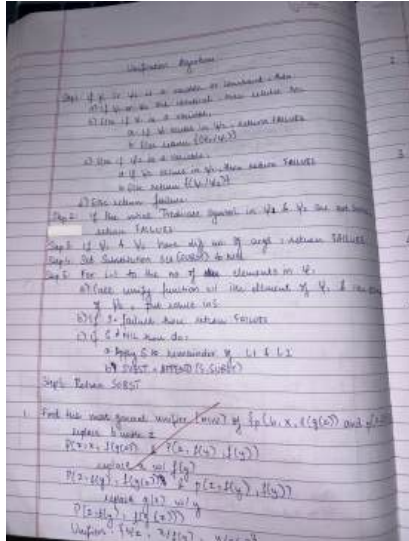 Unification Algorithm
Step 1: If Ψ1 or Ψ2 is a variable or constant, then
a) If Ψ1 or Ψ2 are identical, then return NIL
b) Else if Ψ1 is a variable:
a. If Ψ1 occurs in Ψ2, return FAILURE
b. Else return {(Ψ2/Ψ1)}
c) Else if Ψ2 is a variable:
a. If Ψ2 occurs in Ψ1, then return FAILURE
b. Else return {(Ψ1/Ψ2)}
d) Else return failure
Step 2: If the initial Predicate symbol in Ψ1 & Ψ2 are not same,
return FAILURE
Step 3: If Ψ1 & Ψ2 have diff no of args, return FAILURE
Step 4: Set Substitution set (SUBST) to NIL
Step 5: For i=1 to the no of elements in Ψ1
a) Call unify function w/ ith element of Ψ1 &
of Ψ2, put result in S
b) If S = failure then return FAILURE
c) If S ≠ NIL then do:
a. Apply S to remainder of L1 & L2
b. SUBST = APPEND (S, SUBST)
Step 6: Return SUBST
1. Find the most general unifier (MGU) of {p(b, x, f(g(z))) and
replace b with z
P(z, x, f(g(z))) & P(z, f(y), f(y))
replace x w/ f(y)
P(z, f(y), f(g(z))) & p(z, f(y), f(y))
replace g(z) w/ y
P(z, f(y), f(g(z)))
Unifier: {b/z, x/f(y),
2
3